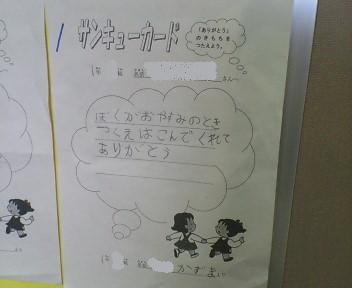 サンキューカード
「ありがとう」
のきもちを
つたえよう。
1年 組
さんへ
ぼくがおやすみのとき
つくえはこんでくれて
ありがとう
1年 組 かずまより